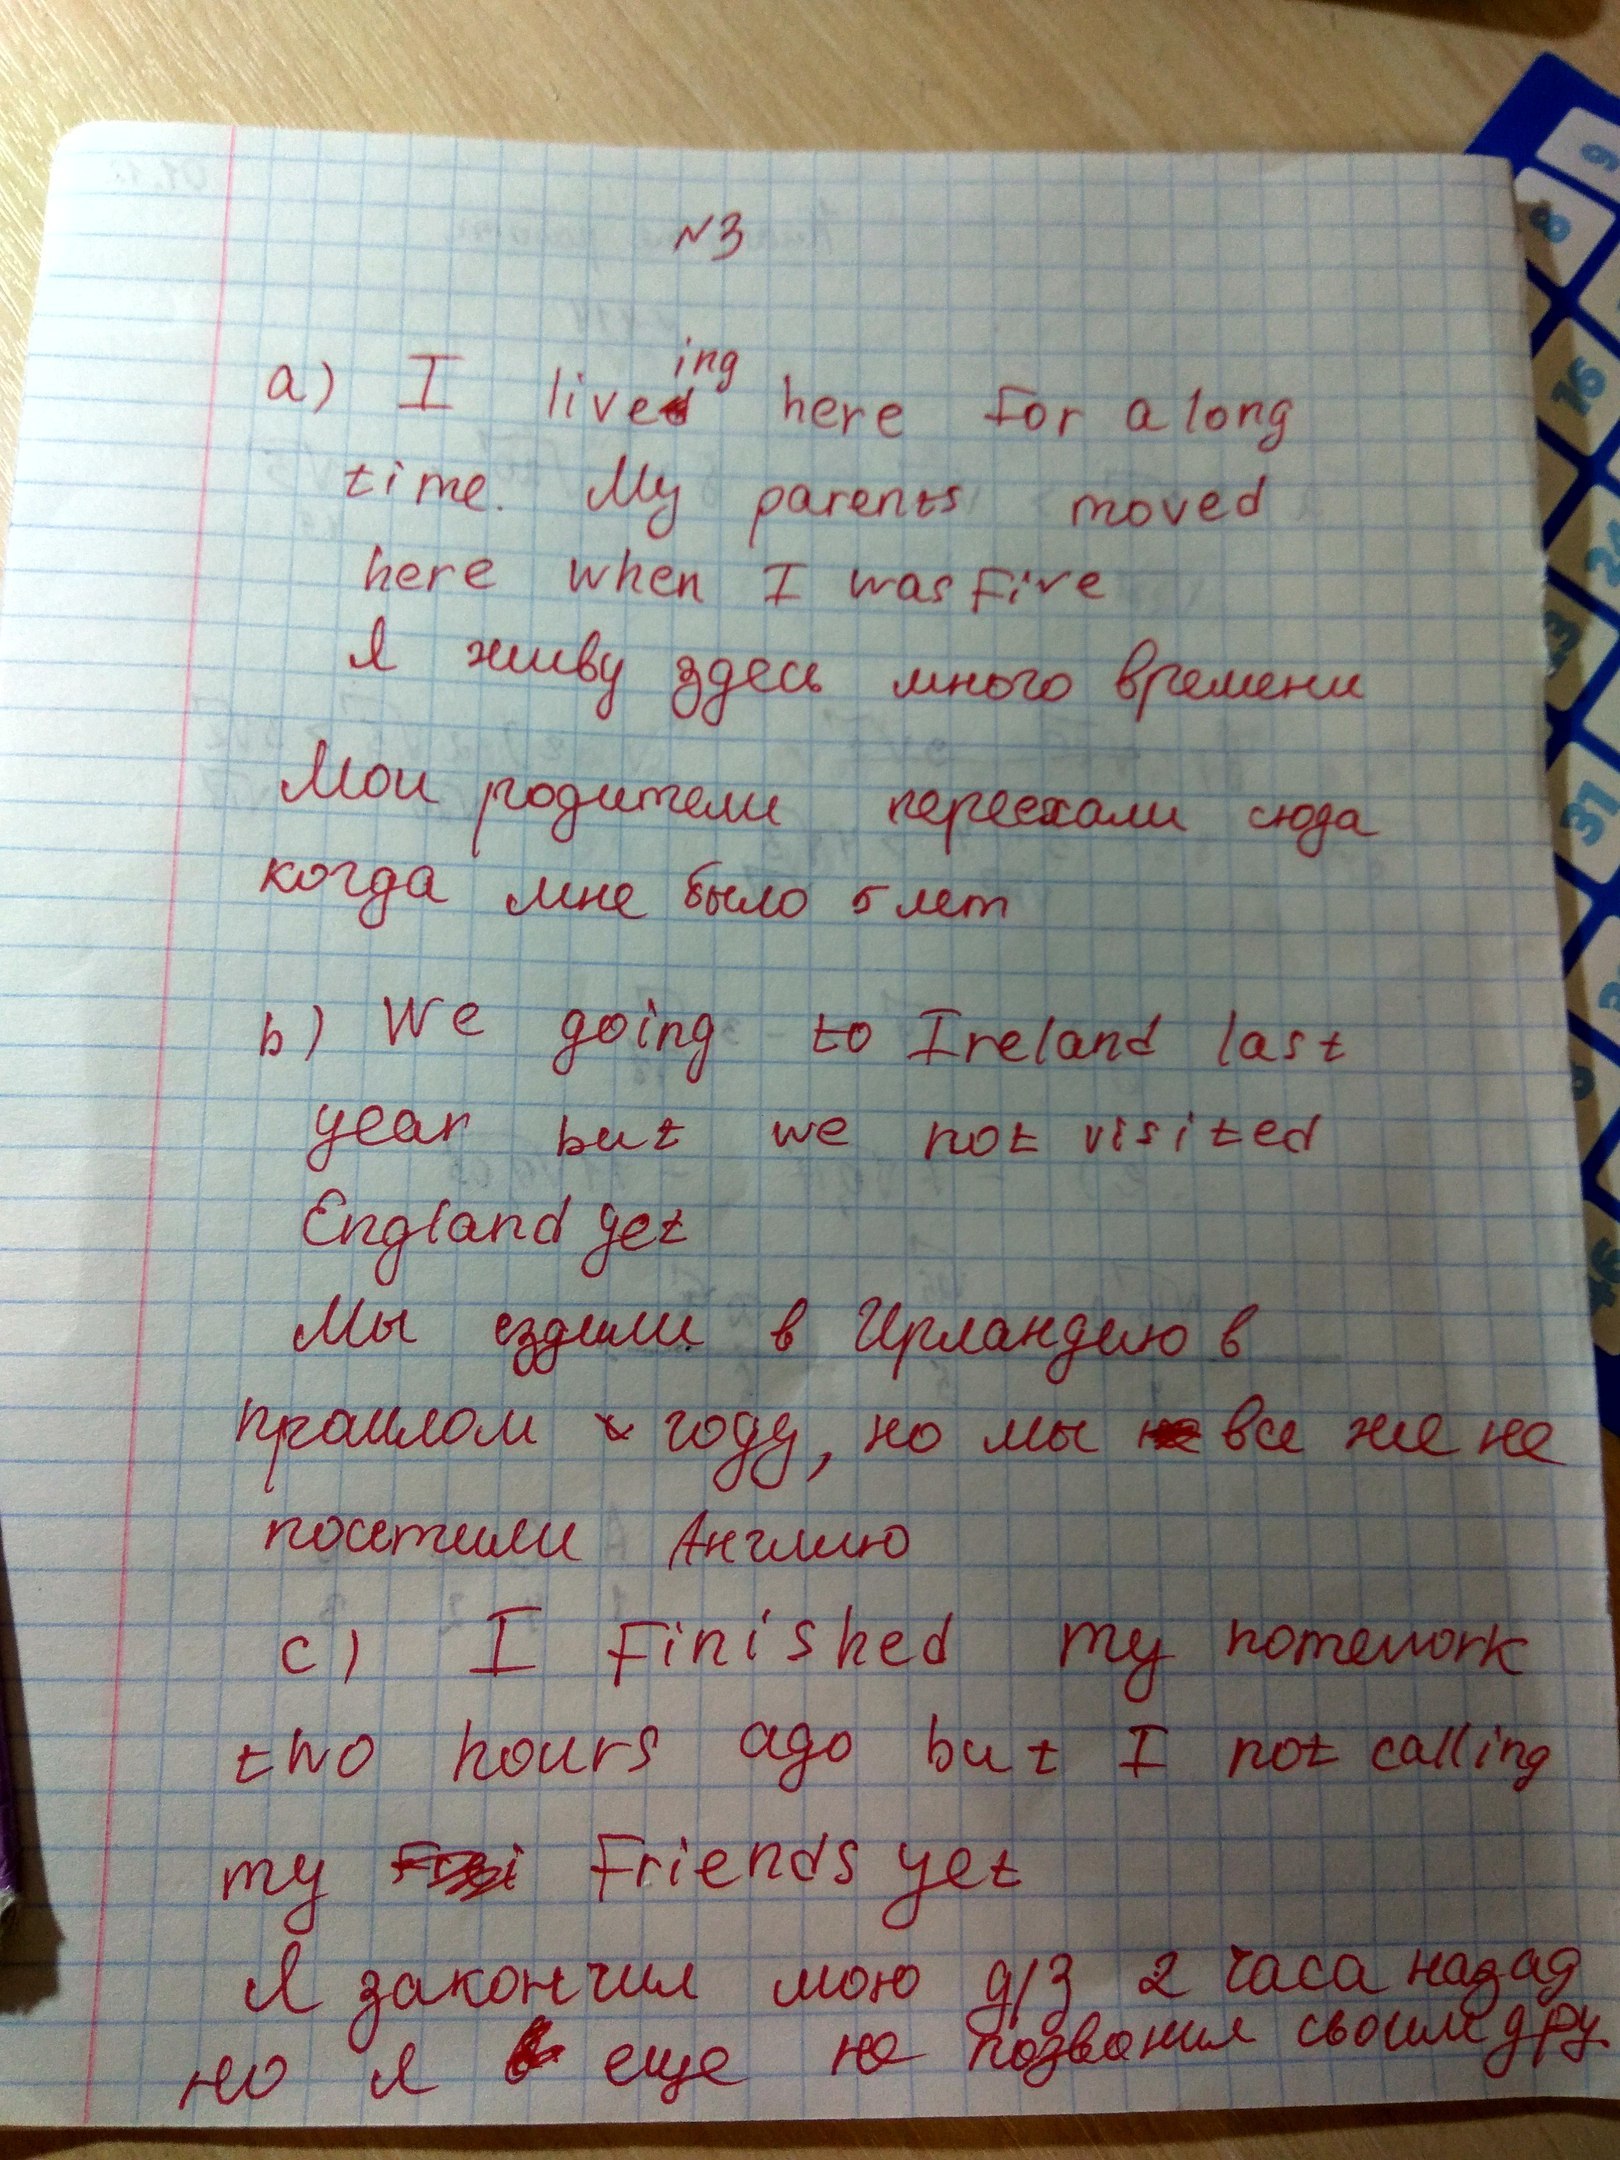 N3
a) I liveing here for a long
time. My parents moved
here when I was five
Я живу здесь много времени
Мои родители переехали сюда
когда мне было 5 лет
b) We going to Ireland last
year but we not visited
England yet
Мы ездили в Ирландию в
прошлом году, но мы все же не
посетили Англию
c) I finished my homework
two hours ago but I not calling
my friends yet
Я закончил мою д/з 2 часа назад
но я еще не позвонил своим дру
9
8
16
31